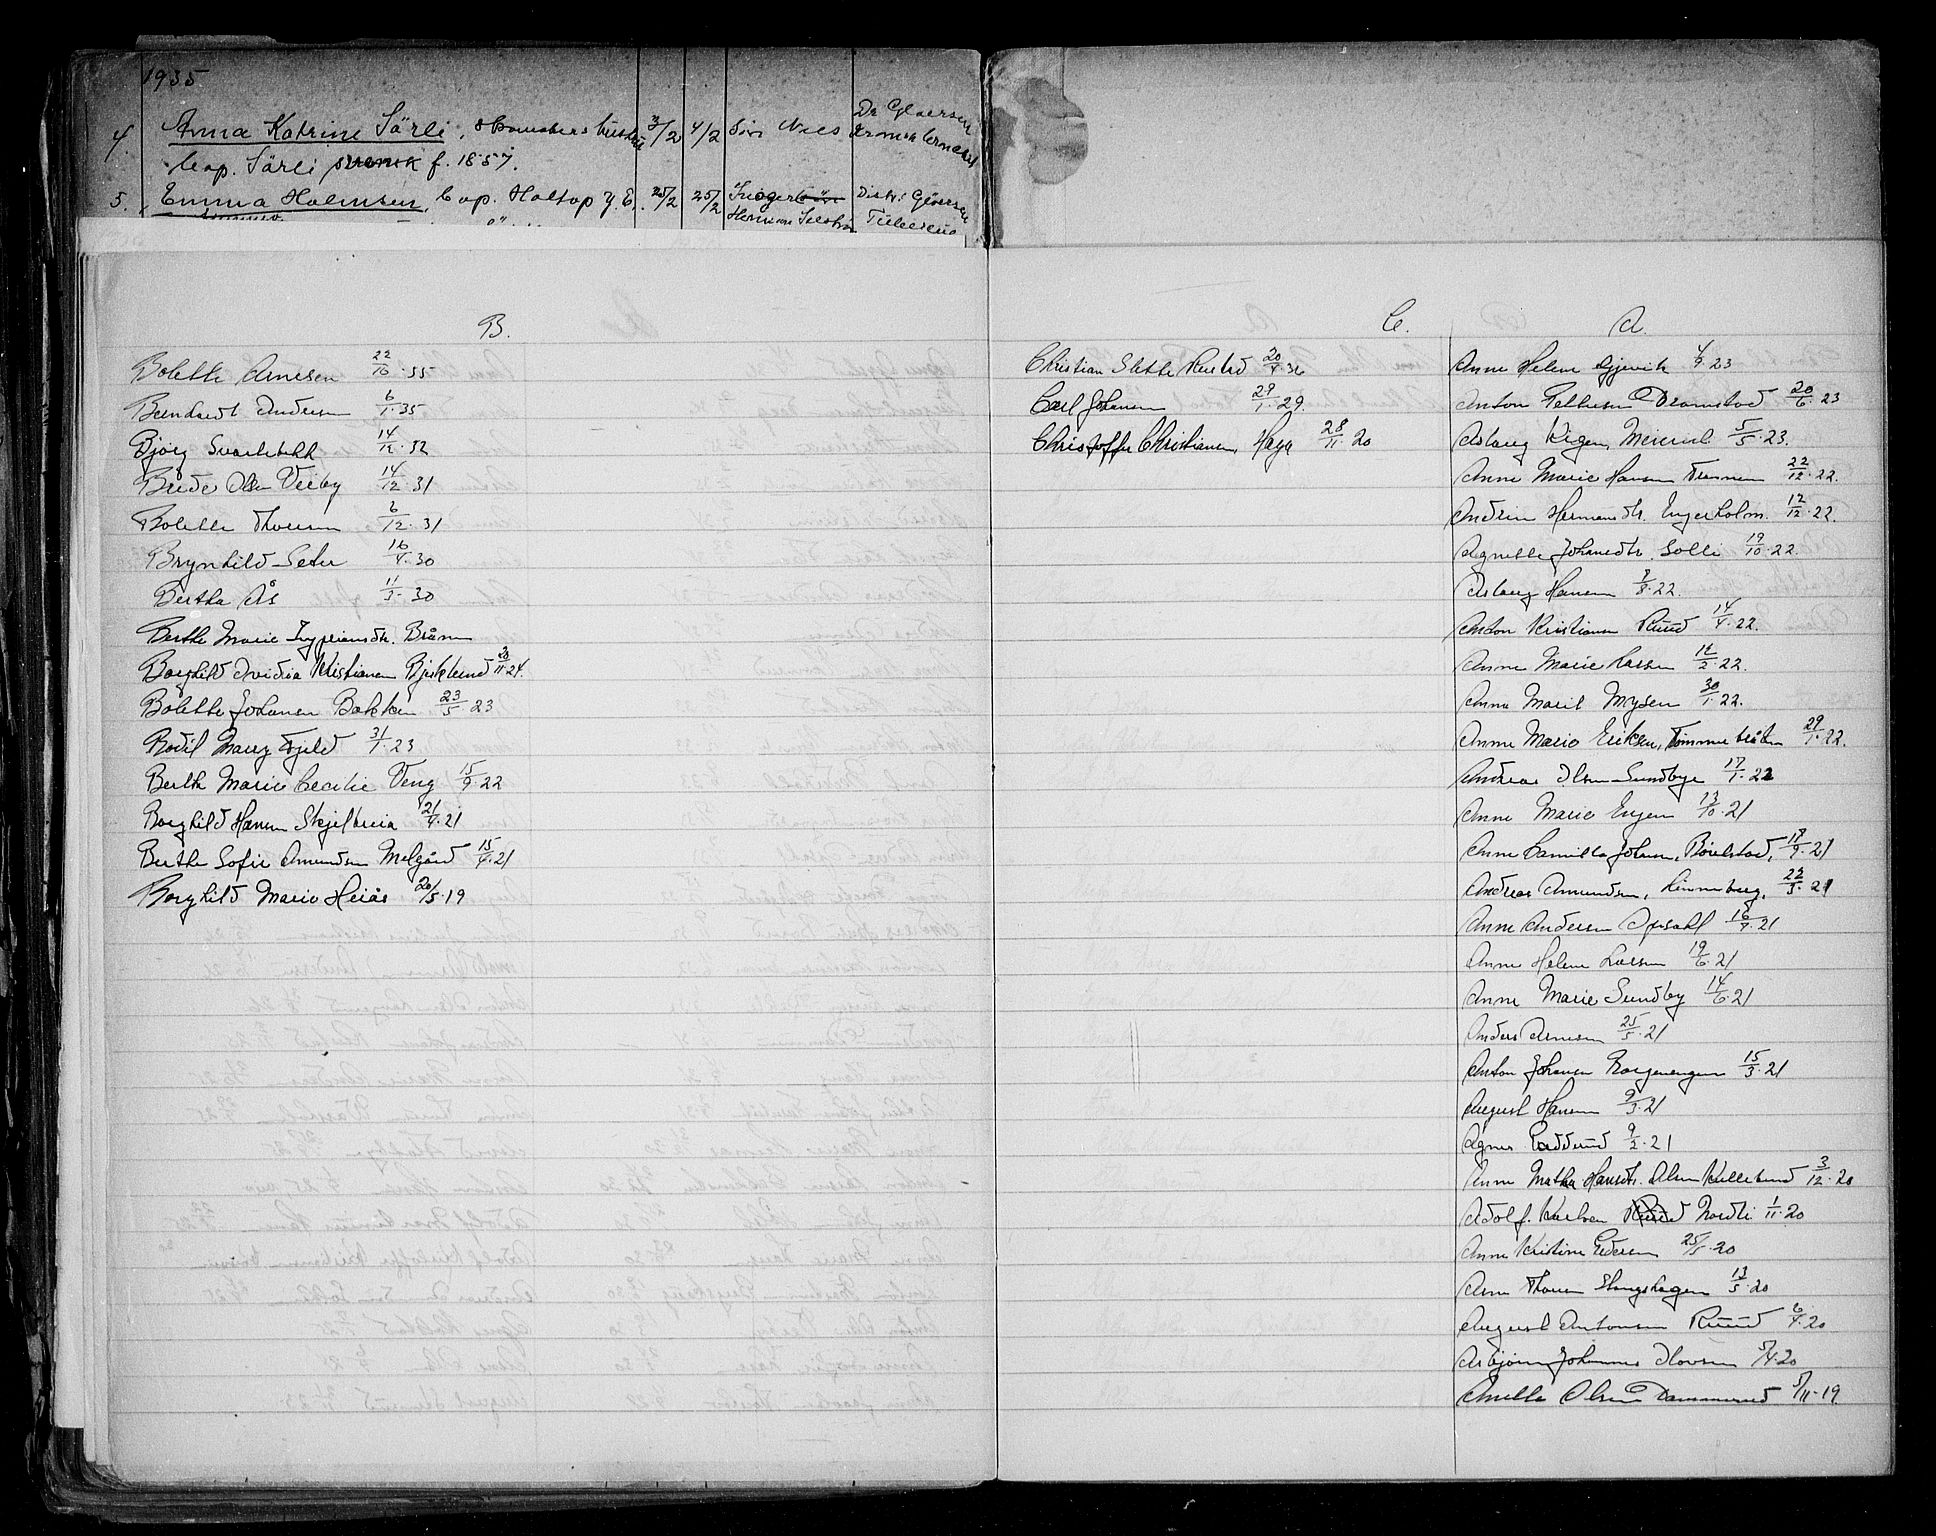 1935
4. Anna Katrine Särli, 3/2 4/2 Dr Gløersen
Cop. Särli f. 1857.
5. Emma Holmsen, Cop. Holtop 25/2 25/2 Distr. Gløersen
Herman
B.
Bolette Arnesen 22/10.35
Bernhardt Andersen 6/1.35
Bjørg Svartebekk 14/12.32
Brede Olsen Veiby 14/12.31
Bolette Thoresen 6/12.31
Brynhild Seter 16/4.30
Bertha Ås 11/3.30
Berthe Marie Bråten
Borghild Kristiansen Bjerklund 20/11.24.
Bolette Johansen Bakken 23/5 23
Bodil Mary Fjeld 31/1.23
Berth Marie Cecilie Veng 15/9 22
Borghild Hansen Skjeltreia 21/4.21
Berthe Sofie Amundsen Melgård 15/4.21
Borghild Marie Heiås 20/5.19
C.
Christian Slette 20/4.36
Carl Johansen 29/1.29.
Christoffer Christiansen, Haga 28/11.20
A.
Anne Helene Gjevik 4/9 23
Anton Pettersen Dramstad 20/6.23
Aslaug Vigen, 5/5.23.
Anne Marie Hansen 22/12.22.
Andrine Hermansdtr. Engerholm. 12/12.22.
Agnette Johansdtr. Solli 19/10.22.
Aslaug Hansen 8/8.22.
Anton Kristiansen Ruud 14/4.22.
Anne Marie Larsen 12/2.22.
Anna Marie Mysen 30/1.22.
Anne Marie Eriksen, Tømmerbråten 29/1.22.
Andreas Olsen Sundbye 17/1.22
Anne Marie Engen 13/10.21
Anne Camilla Johnsen, Børelstad, 18/9.21
Andreas Amundsen, Linneberg, 22/3.21
Anne Andersen Opsahl 18/7.21
Anne Helene Larsen 19/6.21
Anne Marie Sundby 14/6.21
Anders Arnesen 25/5.21
Anton Johansen Borgenengen 15/3.21
August Hansen 9/3.21
Agnes 9/2.21
Anne Mathea Hansdtr. Olsen Kullebund 3/12.20
Adolf Karlsen Ruud Nordli 1/11.20
Anne Kristine Pedersen 25/5.20
Anne Thoresen Slangshagen 13/5.20
August Antonsen Ruud 6/4.20
Asbjørn Johannes Olavsen 5/4.20
Anette Olsen Dammerud 5/11.19.